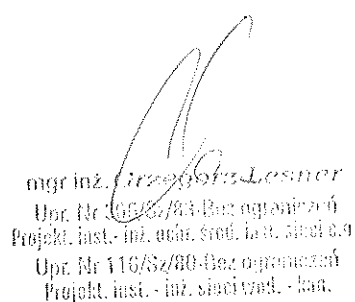 mgr inż. Grzegorz Lesner
Upr. Nr /Sz/83-Bez ograniczeń
Projekt. inst.- inż. ochr. środ. i sieci c.o
Upr. Nr 116/Sz/80-Bez ograniczeń
Projekt. inst. - inż. sieci wod. - kan.